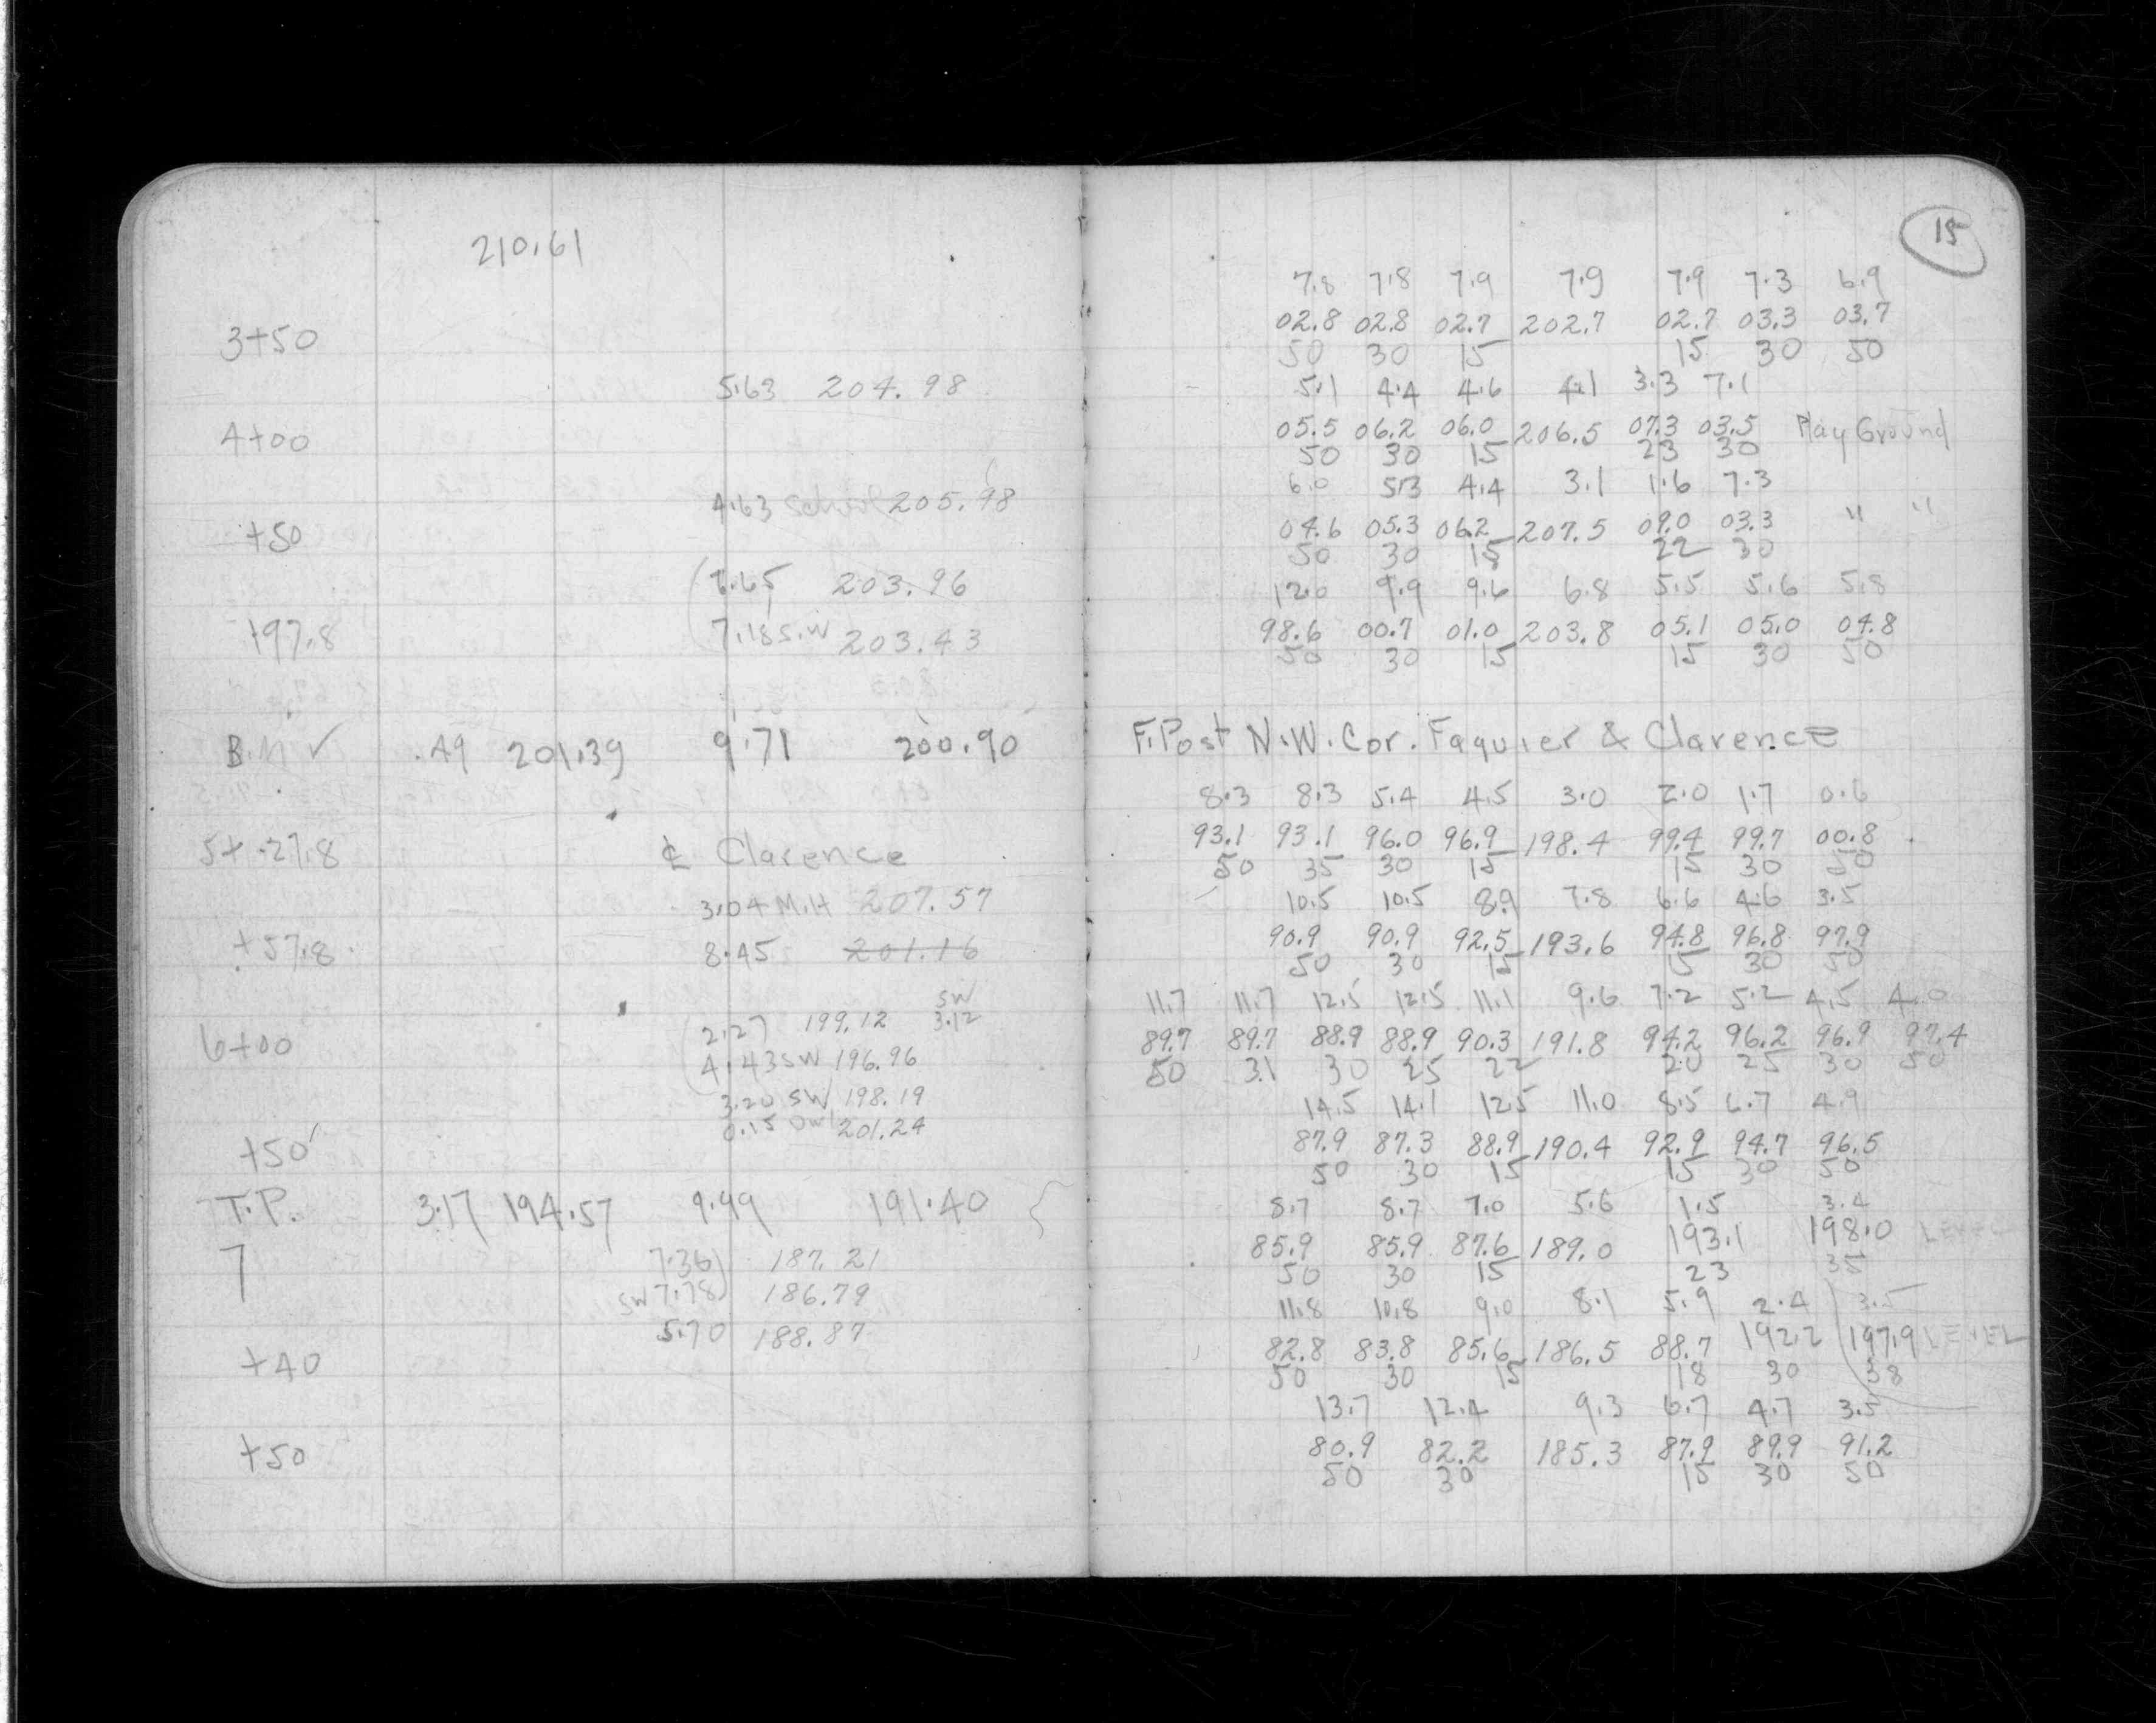 210.61
3+50
5.63 204.98
4+00
4.63 School 205.98
+50
7.65 203.96
+97.8
7.18 S.W 203.43
B.M ✓ .49 201.39 9.71 200.90
5+27.8 ℄ Clarence
3.04 M.H 207.57
+57.8 8.45 201.16
SW
2.27 199.12 3.12
6+00
4.43 SW 196.96
3.20 SW 198.19
0.15 201.24
+50
T.P. 3.17 194.57 9.99 191.40
7 7.36 187.21
SW 7.78 186.79
5.70 188.87
+40
+50
15
7.8 7.8 7.9 7.9 7.9 7.3 6.9
02.8 02.8 02.7 202.7 02.7 03.3 03.7
50 30 15 15 30 50
5.1 4.4 4.6 4.1 3.3 7.1
05.5 06.2 06.0 206.5 07.3 03.5 Play Ground
50 30 15 23 30
6.0 5.3 4.4 3.1 1.6 7.3
04.6 05.3 06.2 207.5 09.0 03.3 " "
50 30 15 22 30
12.0 9.9 9.6 6.8 5.5 5.6 5.8
98.6 00.7 01.0 203.8 05.1 05.0 04.8
50 30 15 15 30 50
F.Post N.W. Cor. Faquier & Clarence
8.3 8.3 5.4 4.5 3.0 2.0 1.7 0.6
93.1 93.1 96.0 96.9 198.4 99.4 99.7 00.8
50 35 30 15 15 30 50
10.5 10.5 8.9 7.8 6.6 4.6 3.5
90.9 90.9 92.5 193.6 94.8 96.8 97.9
50 30 15 15 30 50
11.7 11.7 12.5 12.5 11.1 9.6 7.2 5.2 4.5 4.0
89.7 89.7 88.9 88.9 90.3 191.8 94.2 96.2 96.9 97.4
50 31 30 25 22 20 25 30 50
14.5 14.1 12.5 11.0 8.5 6.7 4.9
87.9 87.3 88.9 190.4 92.9 94.7 96.5
50 30 15 15 30 50
8.7 8.7 7.0 5.6 1.5 3.4
85.9 85.9 87.6 189.0 193.1 198.0 LEVEL
50 30 15 23 35
11.8 10.8 9.0 8.1 5.9 2.4 3.5
82.8 83.8 85.6 186.5 88.7 192.2 197.9 LEVEL
50 30 15 18 30 38
13.7 12.4 9.3 6.7 4.7 3.5
80.9 82.2 185.3 87.9 89.9 91.2
50 30 15 30 50